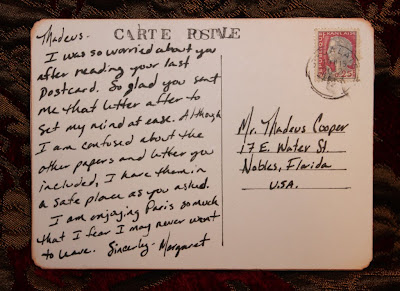 CARTE POSTALE
Thadeus.
I was so worried about you
after reading your last
Postcard. So glad you sent
me that letter after to
set my mind at ease. Although
I am confused about the
other papers and letter you
included, I have them in
a safe place as you asked.
I am enjoying Paris so much
that I fear I may never want
to leave. Sincerly- Margaret
Mr. Thadeus Cooper
17 E. Water St
Nobles, Florida
U.S.A.